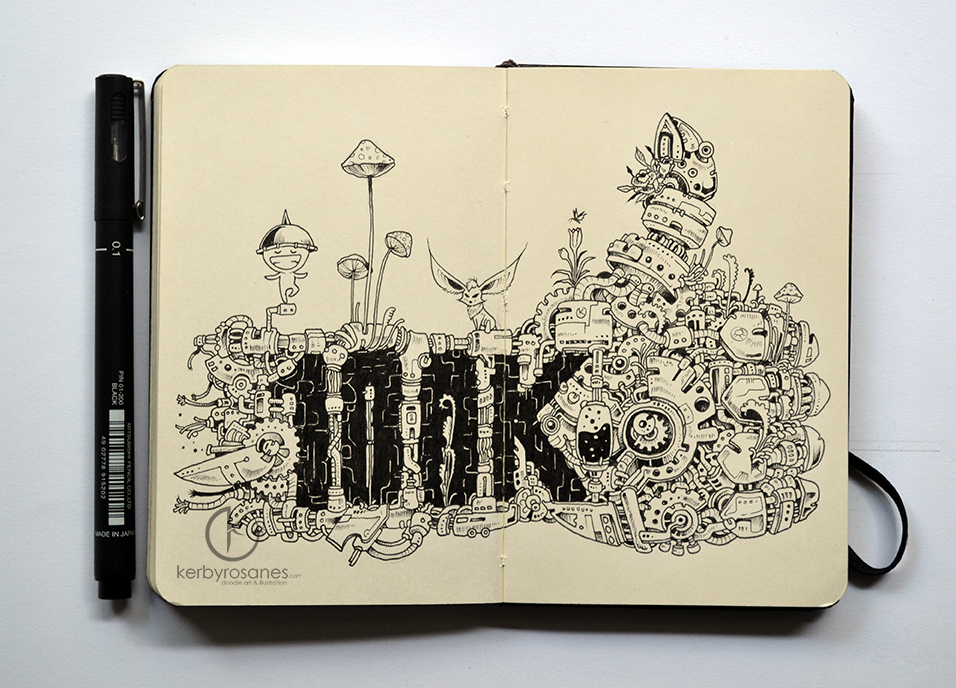 0.1
PIN 01-200
BLACK
MITSUBISHI PENCIL CO.,LTD.
49 02778 915202
MADE IN JAPA
kerbyrosanes.com
doodle art & illustration